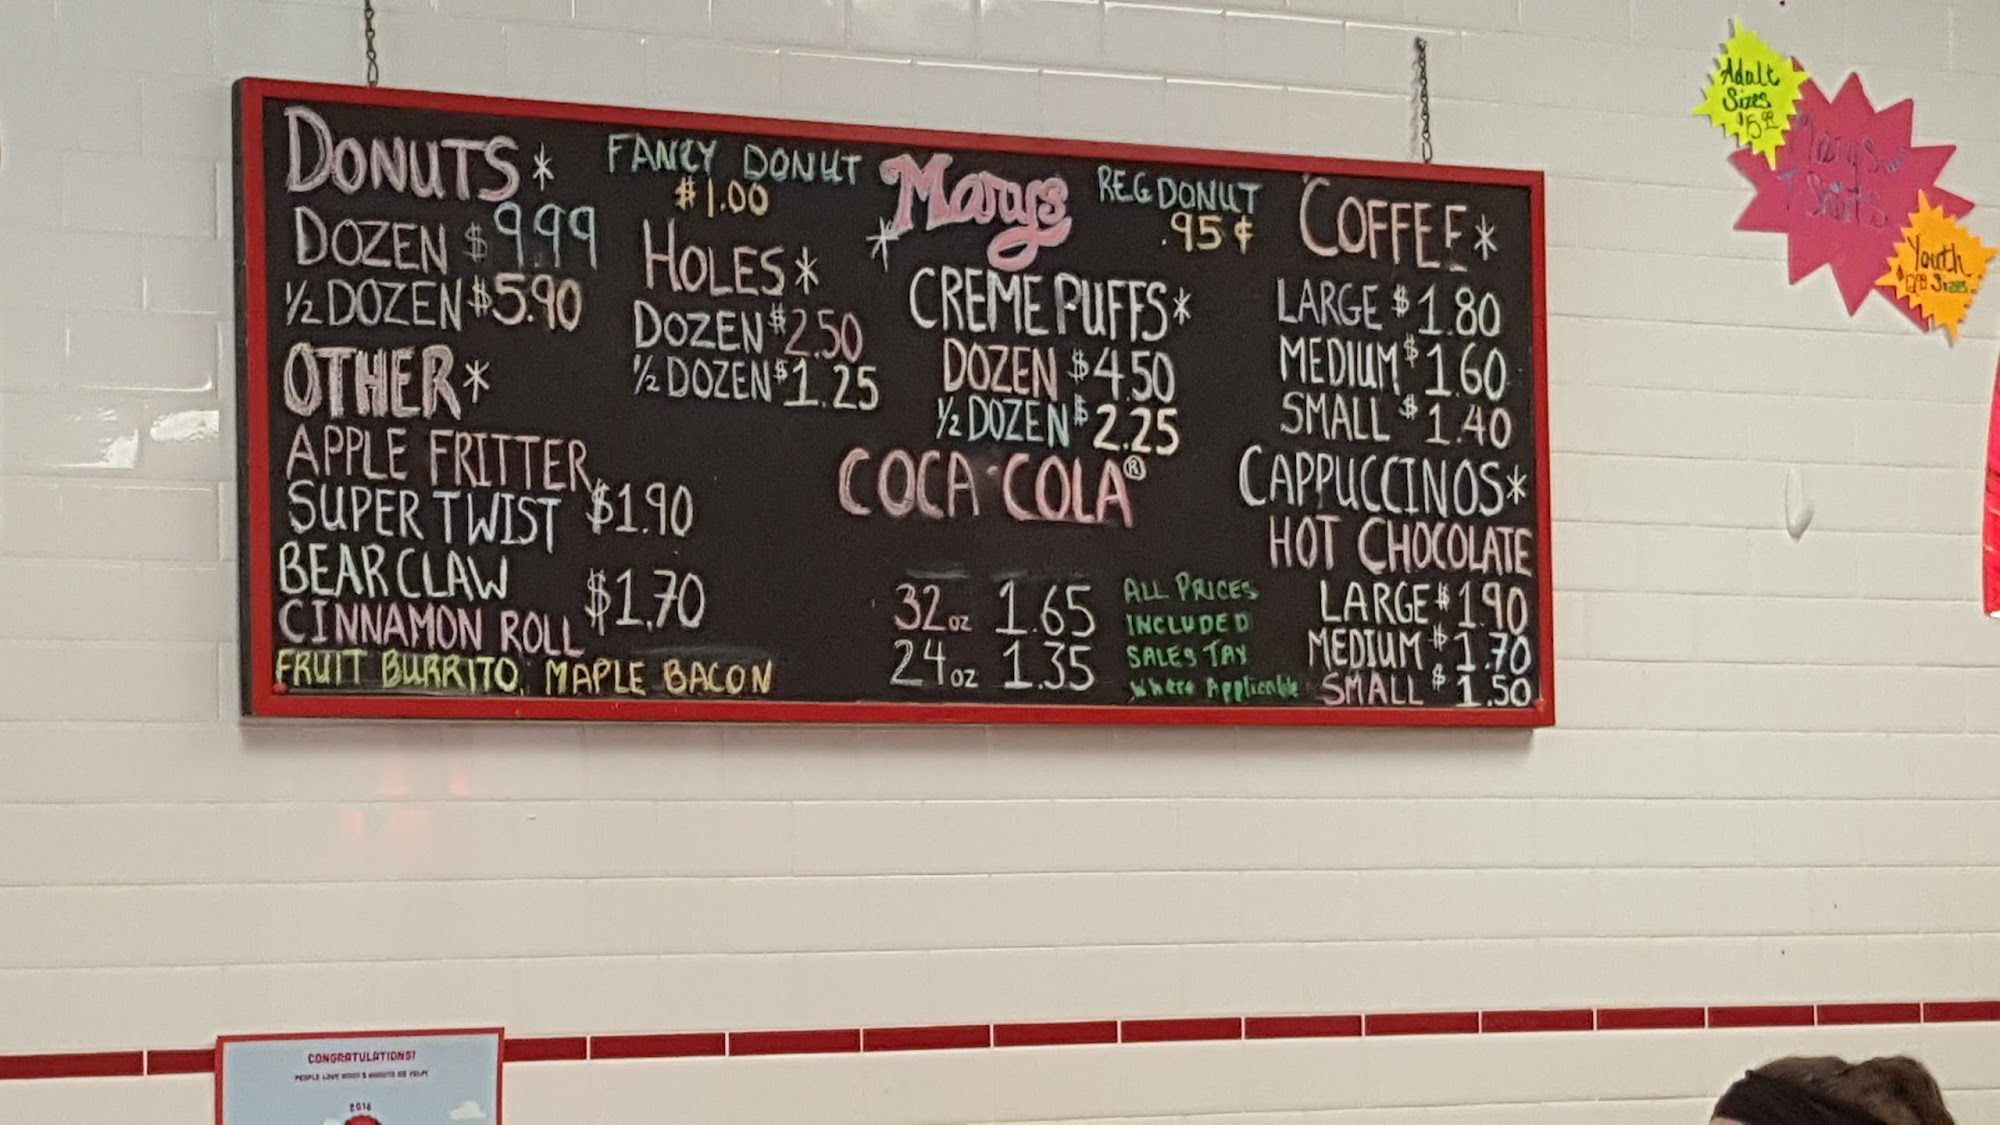 DONUTS*
DOZEN $9.99
½ DOZEN $5.90
OTHER*
APPLE FRITTER
SUPER TWIST $1.90
BEAR CLAW
CINNAMON ROLL $1.70
FRUIT BURRITO, MAPLE BACON
FANCY DONUT
$1.00
HOLES*
DOZEN $2.50
½ DOZEN $1.25
*Marys
CREME PUFFS*
DOZEN $4.50
½ DOZEN $2.25
COCA-COLA®
32oz 1.65
24oz 1.35
ALL PRICES
INCLUDED
SALES TAX
Where Applicable
REG DONUT
.95¢
COFFEE*
LARGE $1.80
MEDIUM $1.60
SMALL $1.40
CAPPUCCINOS*
HOT CHOCOLATE
LARGE $1.90
MEDIUM $1.70
SMALL $1.50
Adult
Sizes
Marys
T Shirts
Youth
Sizes
CONGRATULATIONS!
2016